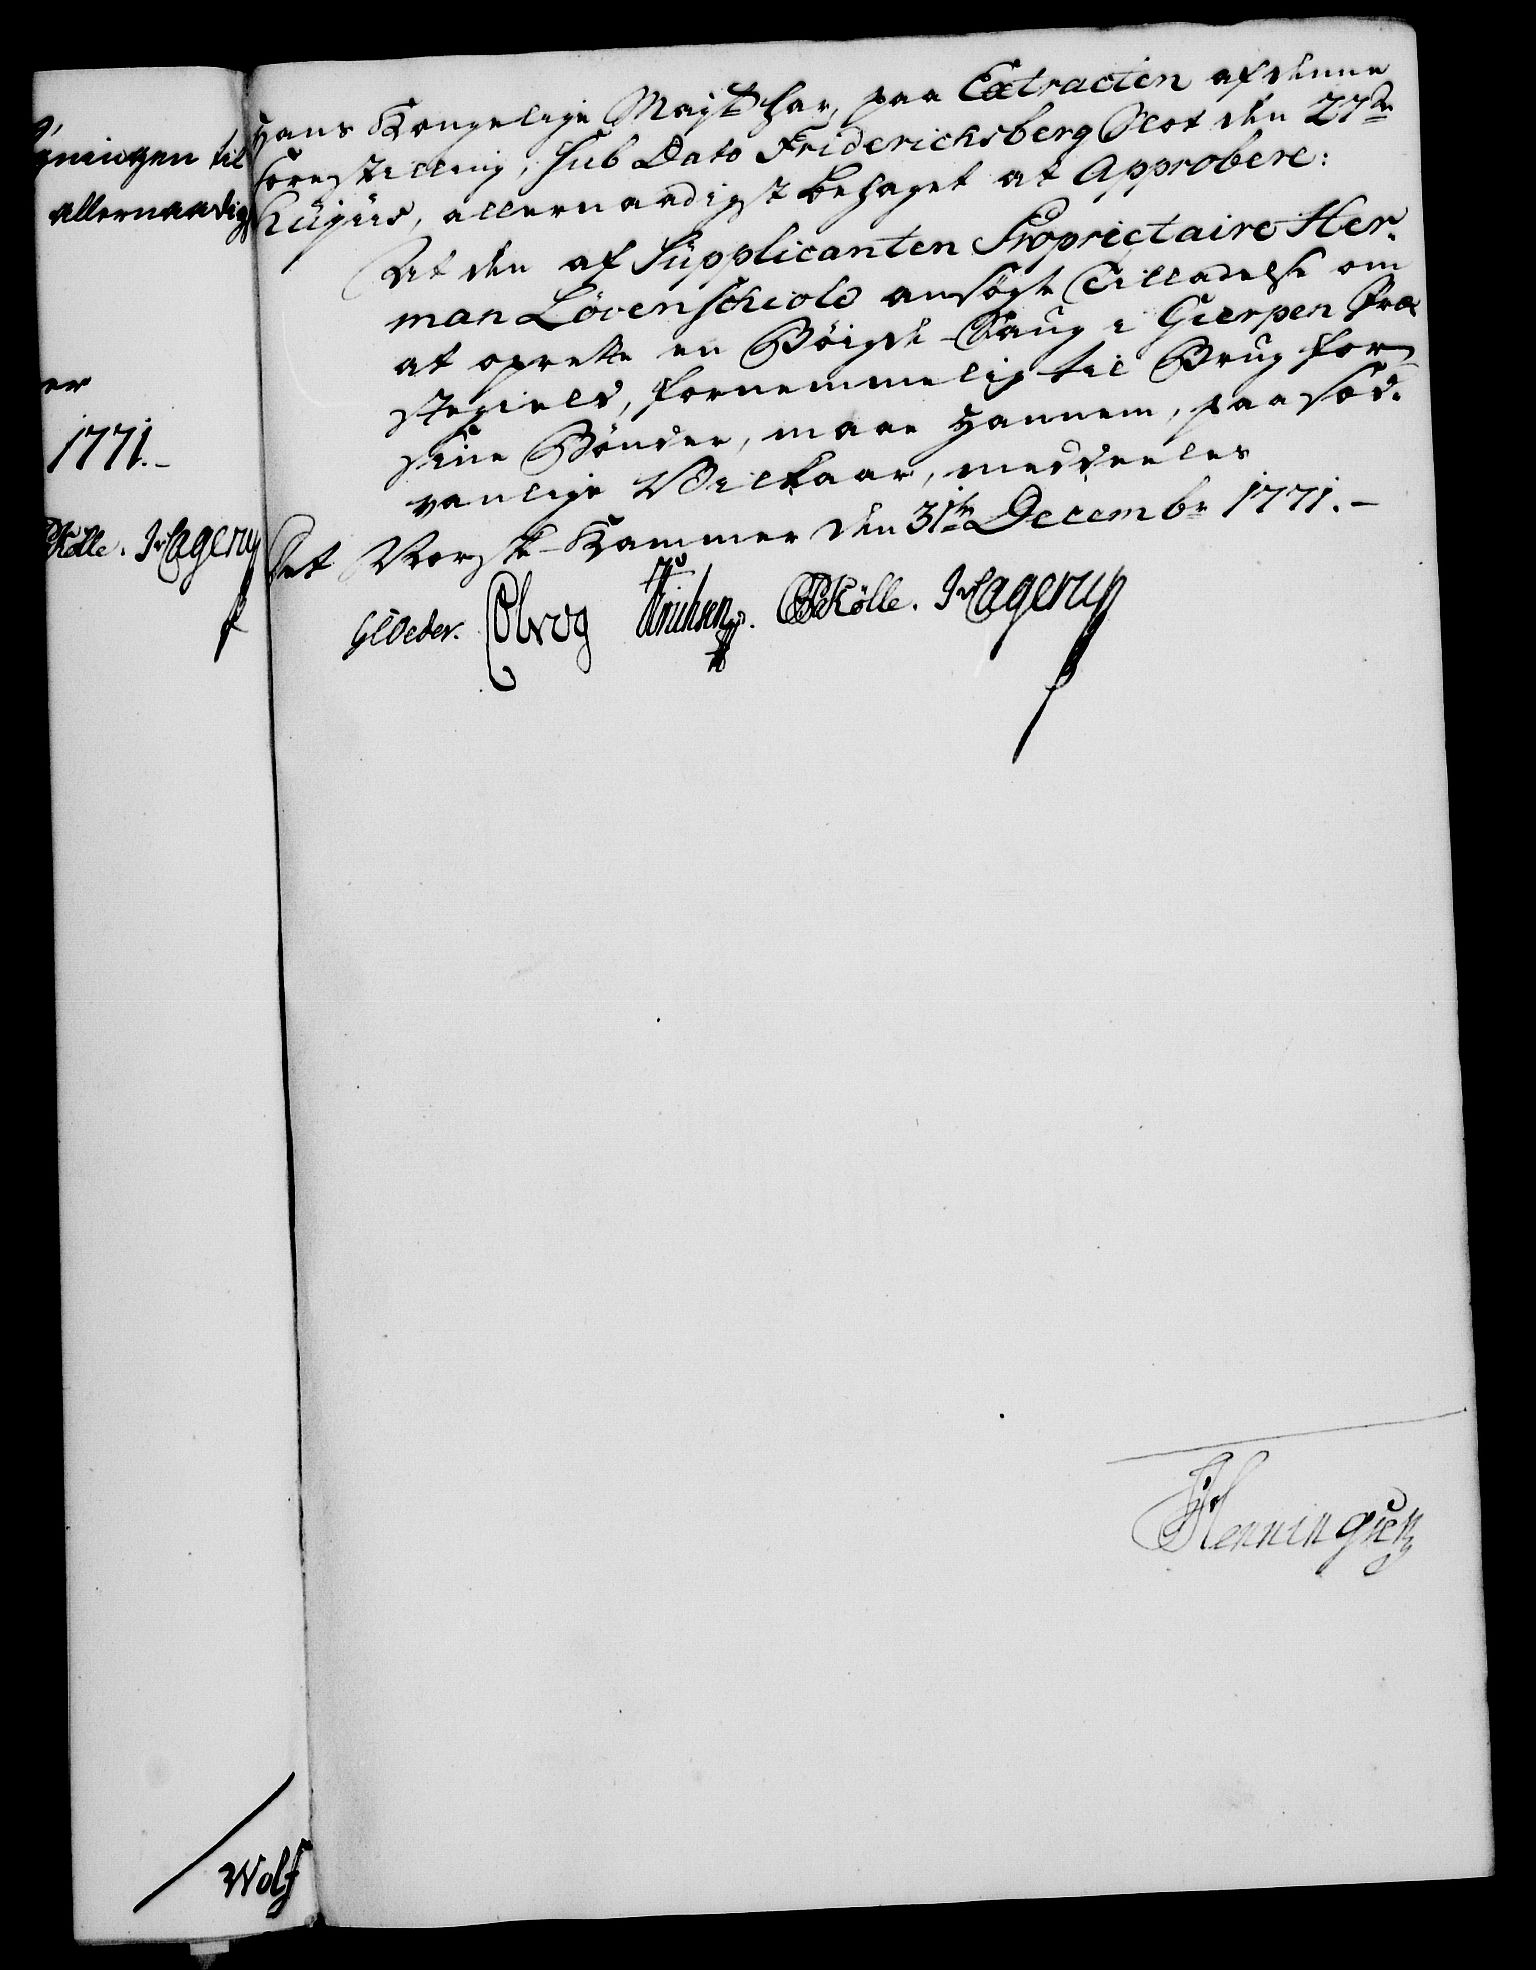 gningen til
allernaadigst
er
1771.-
Kølle. J Hagerup
Wolf
Hans Kongelige Mayt har, paa Extracten af denne
Forestilling, sub Dato Friderichsberg Slot den 27de
hujus, allernaadigst behaget at Approbere:
At den af Supplicanten Proprietaire Her-
man Lövenschiold ansögte Tilladelse om
at oprette en Böigde-Saug i Gierpen Præ
stegield, fornemmelig til Brug for
sine Bönder, maae Hannem, paa sæd-
vanlige Vilkaar, meddeeles
Det Norske Kammer den 31te Decembr 1771.-
GCOeder. Kølle. J Hagerup
Henningsen